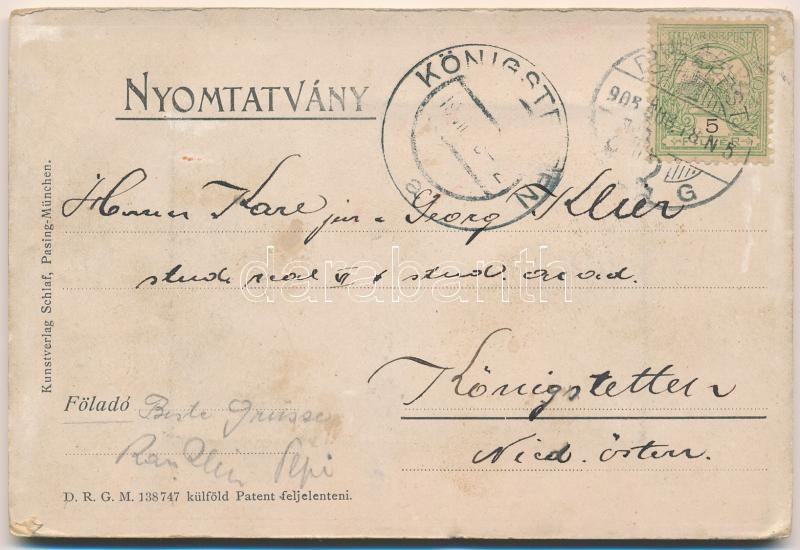 NYOMTATVÁNY
KÖNIGST EN
a
MAGYAR KIR. POSTA
5
FILLÉR
905
N5
G
Herren Karl jun & Georg Klier
stud. real VI & stud. acad.
darabanth
Königstetten
Nied. Österr.
Föladó Beste Grüsse
Pepi
D. R. G. M. 138747 külföld Patent feljelenteni.
Kunstverlag Schlaf, Pasing-München.